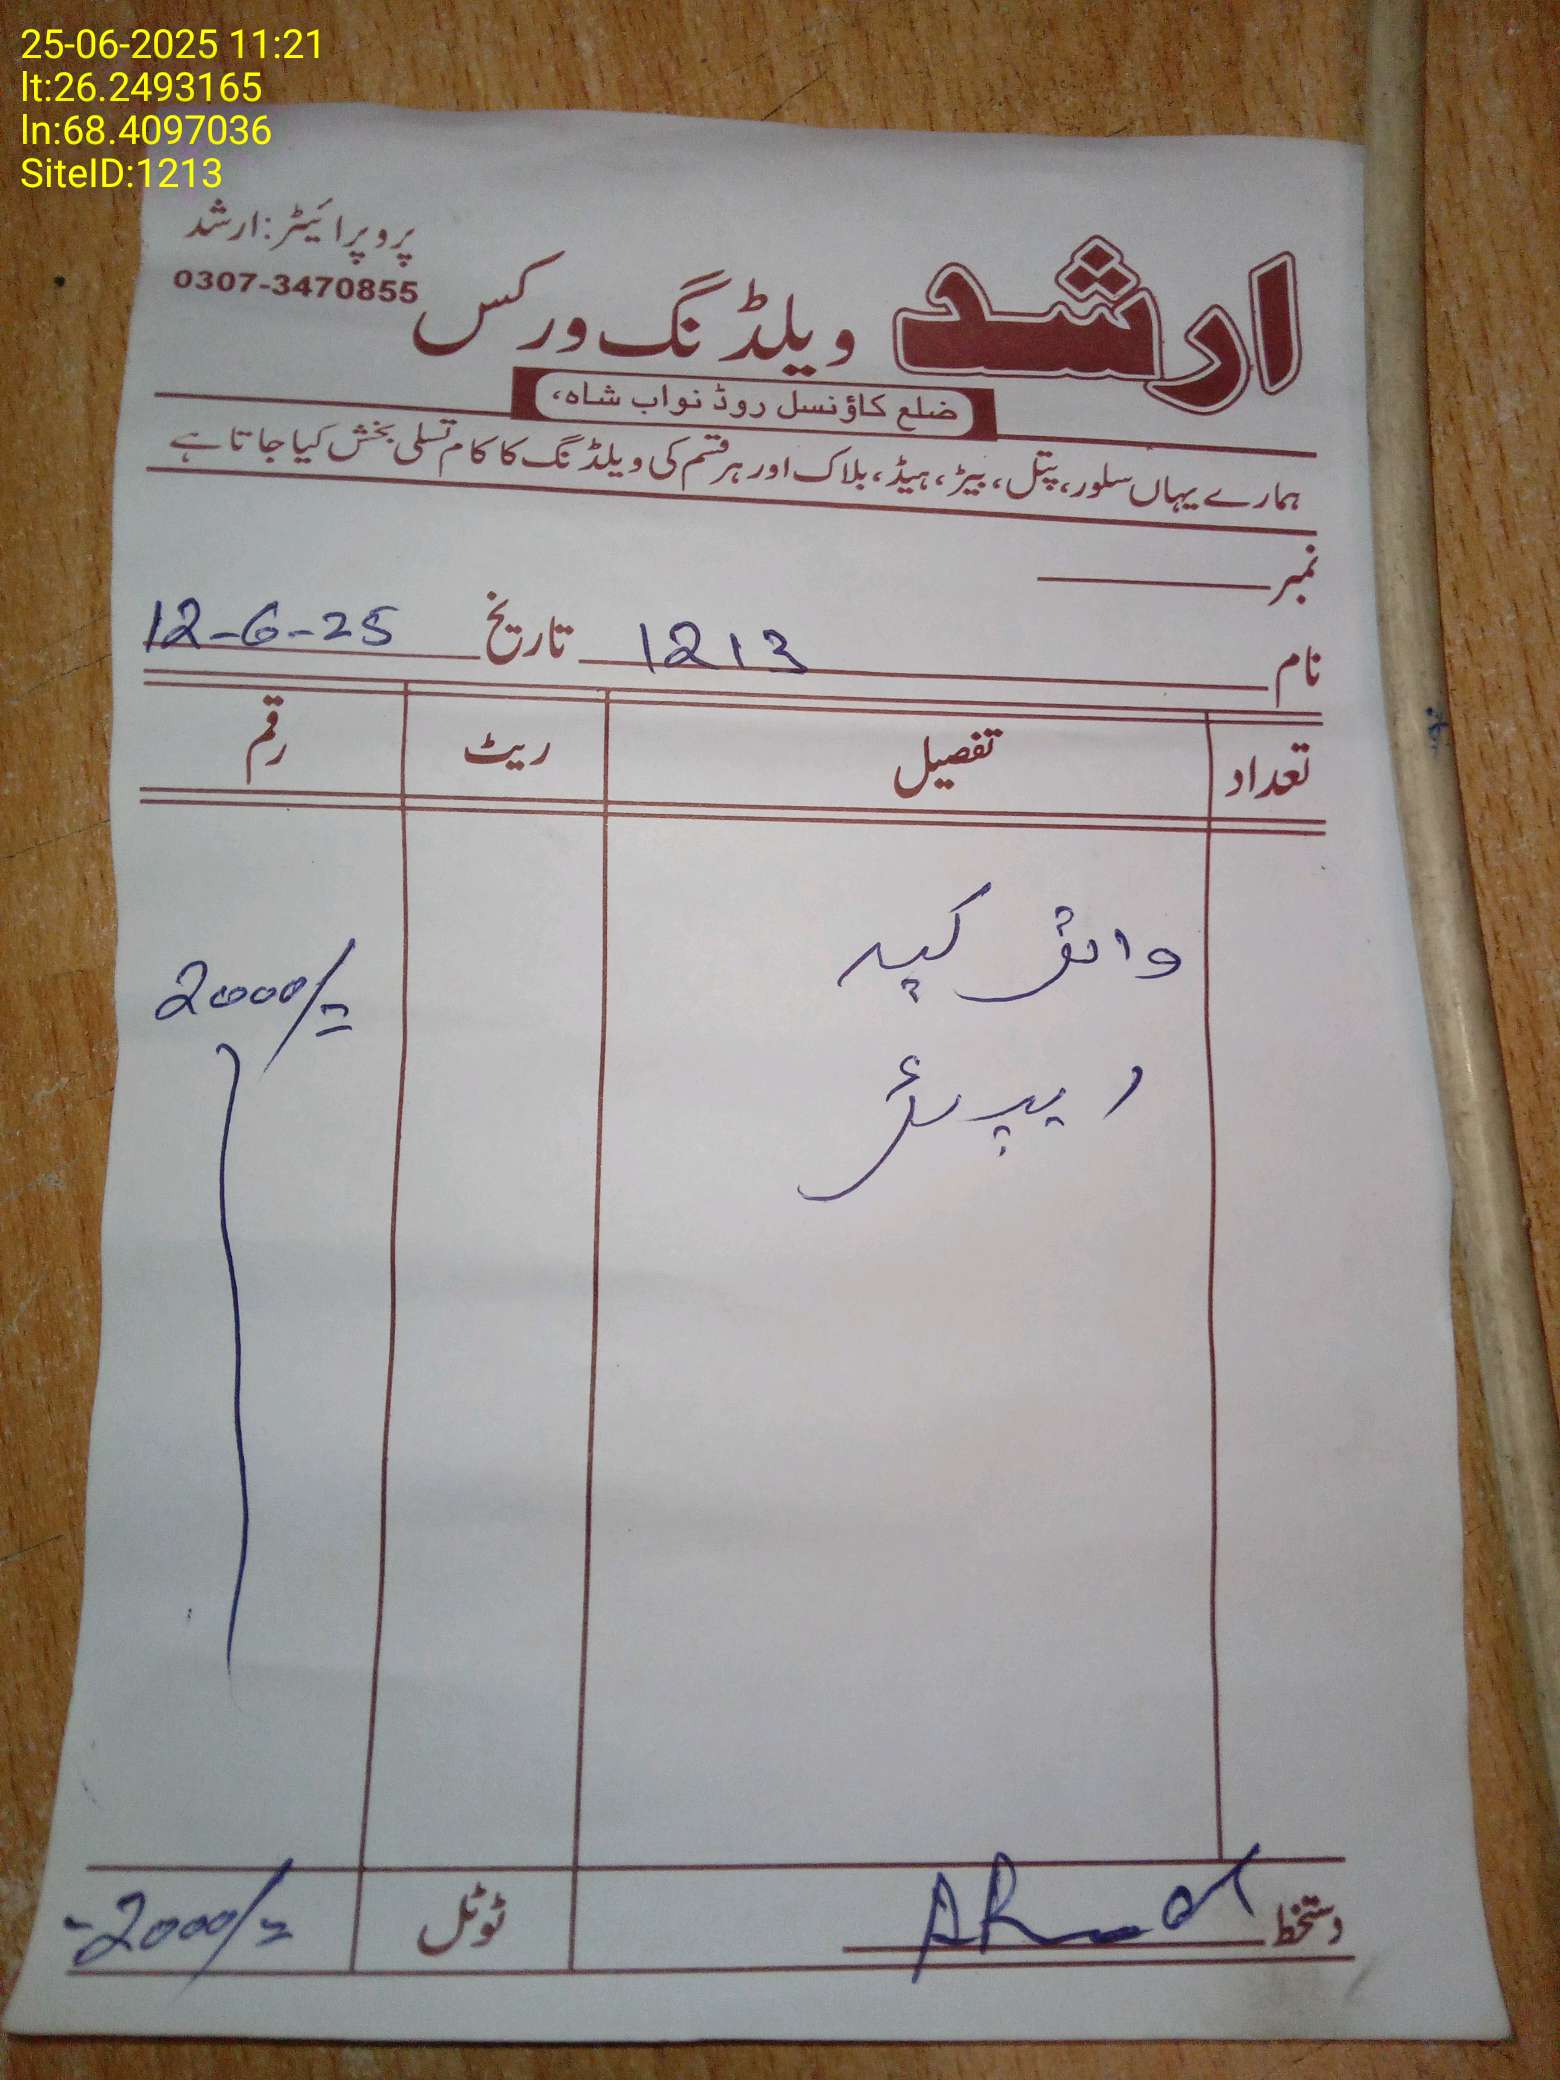 25-06-2025 11:21
lt:26.2493165
ln:68.4097036
SiteID:1213
پروپرائیٹر: ارشد
0307-3470855
ارشد ویلڈنگ ورکس
ضلع کاؤنسل روڈ نواب شاہ،
ہمارے یہاں سلور، پیتل، بیڑ، ہیڈ، بلاک اور ہر قسم کی ویلڈنگ کا کام تسلی بخش کیا جاتا ہے
نمبر
نام 1213 تاریخ 12-6-25
تعداد تفصیل ریٹ رقم
2000/=
دستخط ٹوٹل 2000/=